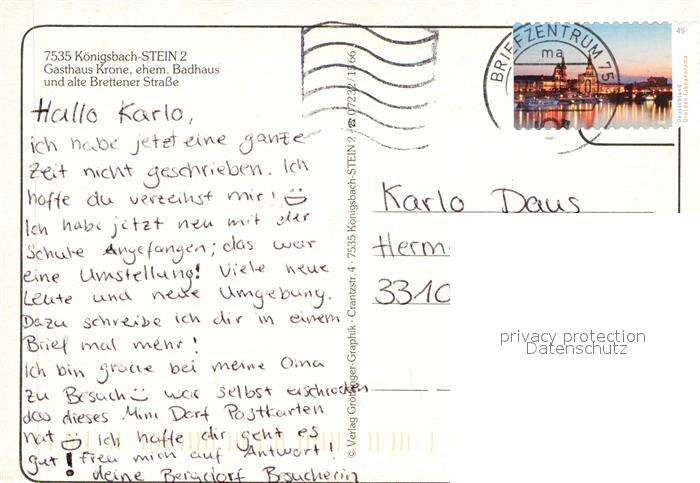 7535 Königsbach-STEIN 2
Gasthaus Krone, ehem. Badhaus
und alte Brettener Straße
Hallo Karlo,
ich habe jetzt eine ganze
Zeit nicht geschrieben. Ich
hoffe du verzeihst mir!
Ich habe jetzt neu mit der
Schule Angefangen; das war
eine Umstellung! Viele neue
Leute und neue Umgebung.
Dazu schreibe ich dir in einem
Brief mal mehr!
Ich bin grade bei meine Oma
zu Besuch war selbst erschrocken
das dieses Mini Dorf Postkarten
hat Ich hoffe dir geht es
gut! freu mich auf Antwort!
deine Bergdorf Besucherin
© Verlag Graphik · Crantzstr. 4 · 7535 Königsbach-STEIN 2 · ☎ 07232/1566
BRIEFZENTRUM 75
ma
45
Deutschland
Karlo Daus
Herm
3310
privacy protection
Datenschutz